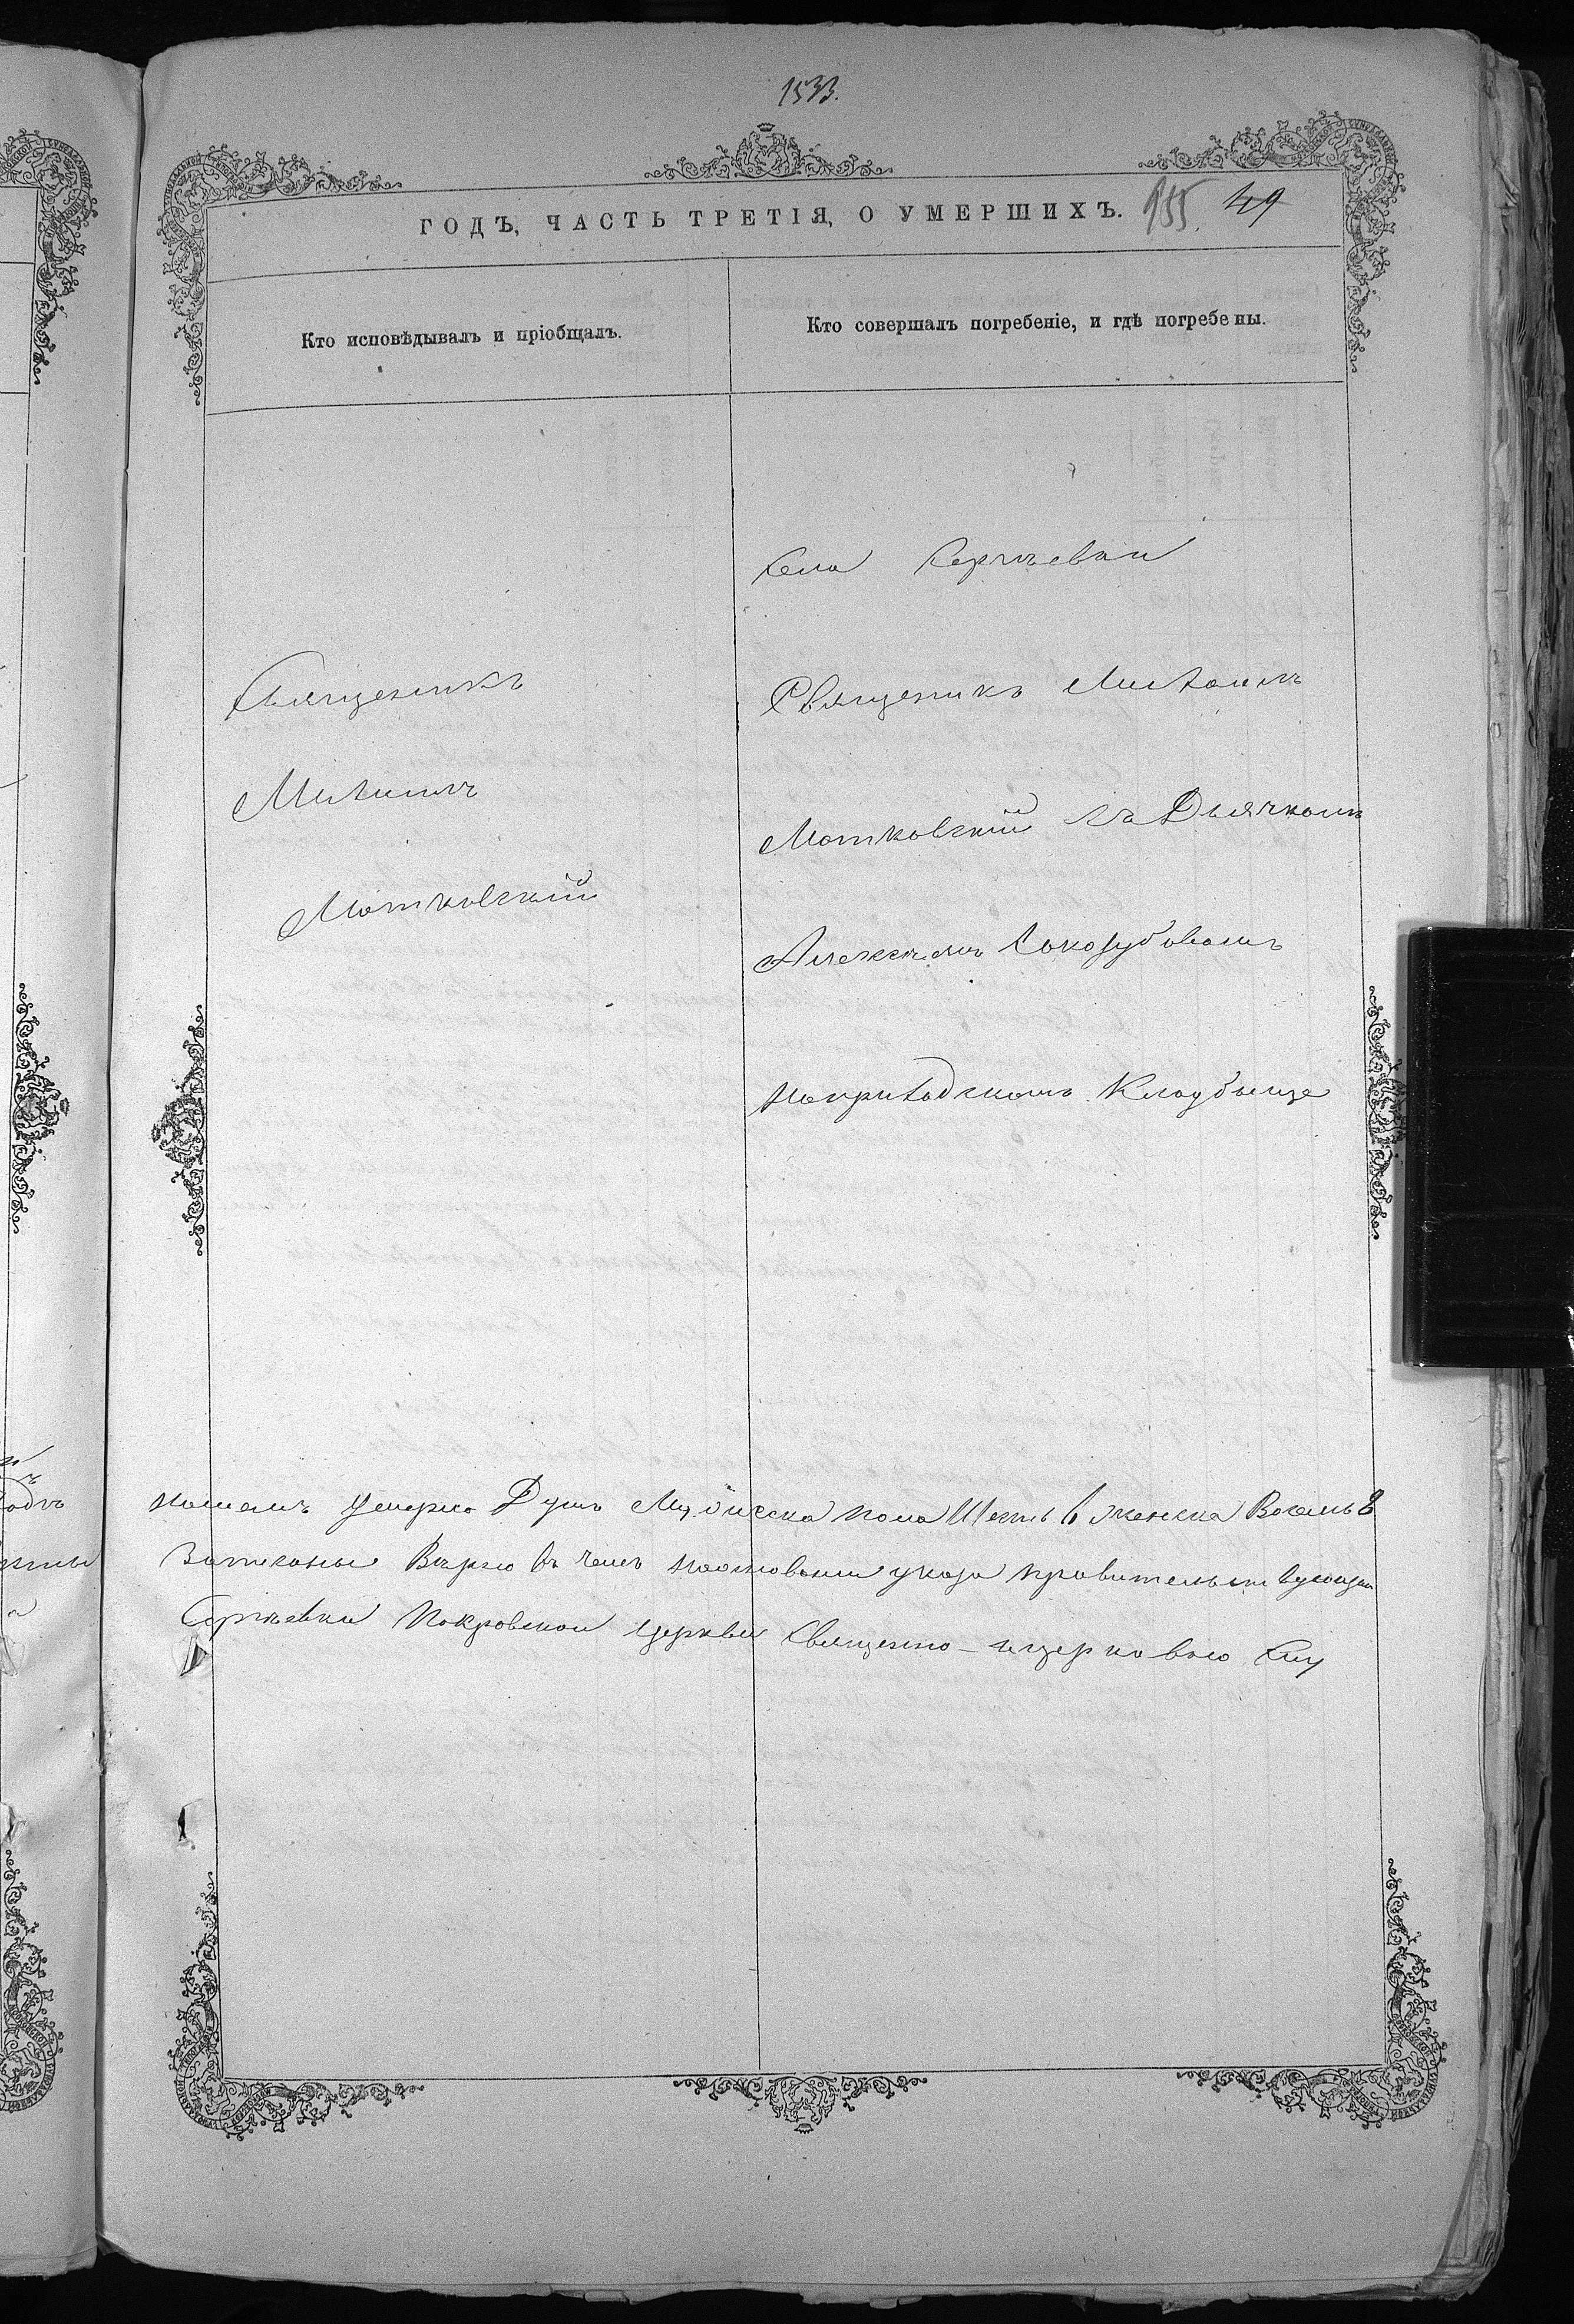 1533.
ГОДЪ, ЧАСТЬ ТРЕТІЯ, О УМЕРШИХЪ. 955. 49
Кто исповѣдывалъ и пріобщалъ.
Кто совершалъ погребеніе, и гдѣ погребены.
Священикъ
Михаилъ
Мотковскій
Села Сергѣевки
Священикъ Михаилъ
Мотковскій съ Дьячкомъ
Алексѣемъ
Наприходскомъ Кладбище
умерло Душъ Мужеска пола Шесть 6 женска Восемь 8
Записаны Вѣрно въ чемъ наосновании указа правительствующаго
Сергѣевки Покровской церкви Священно-церковно слу